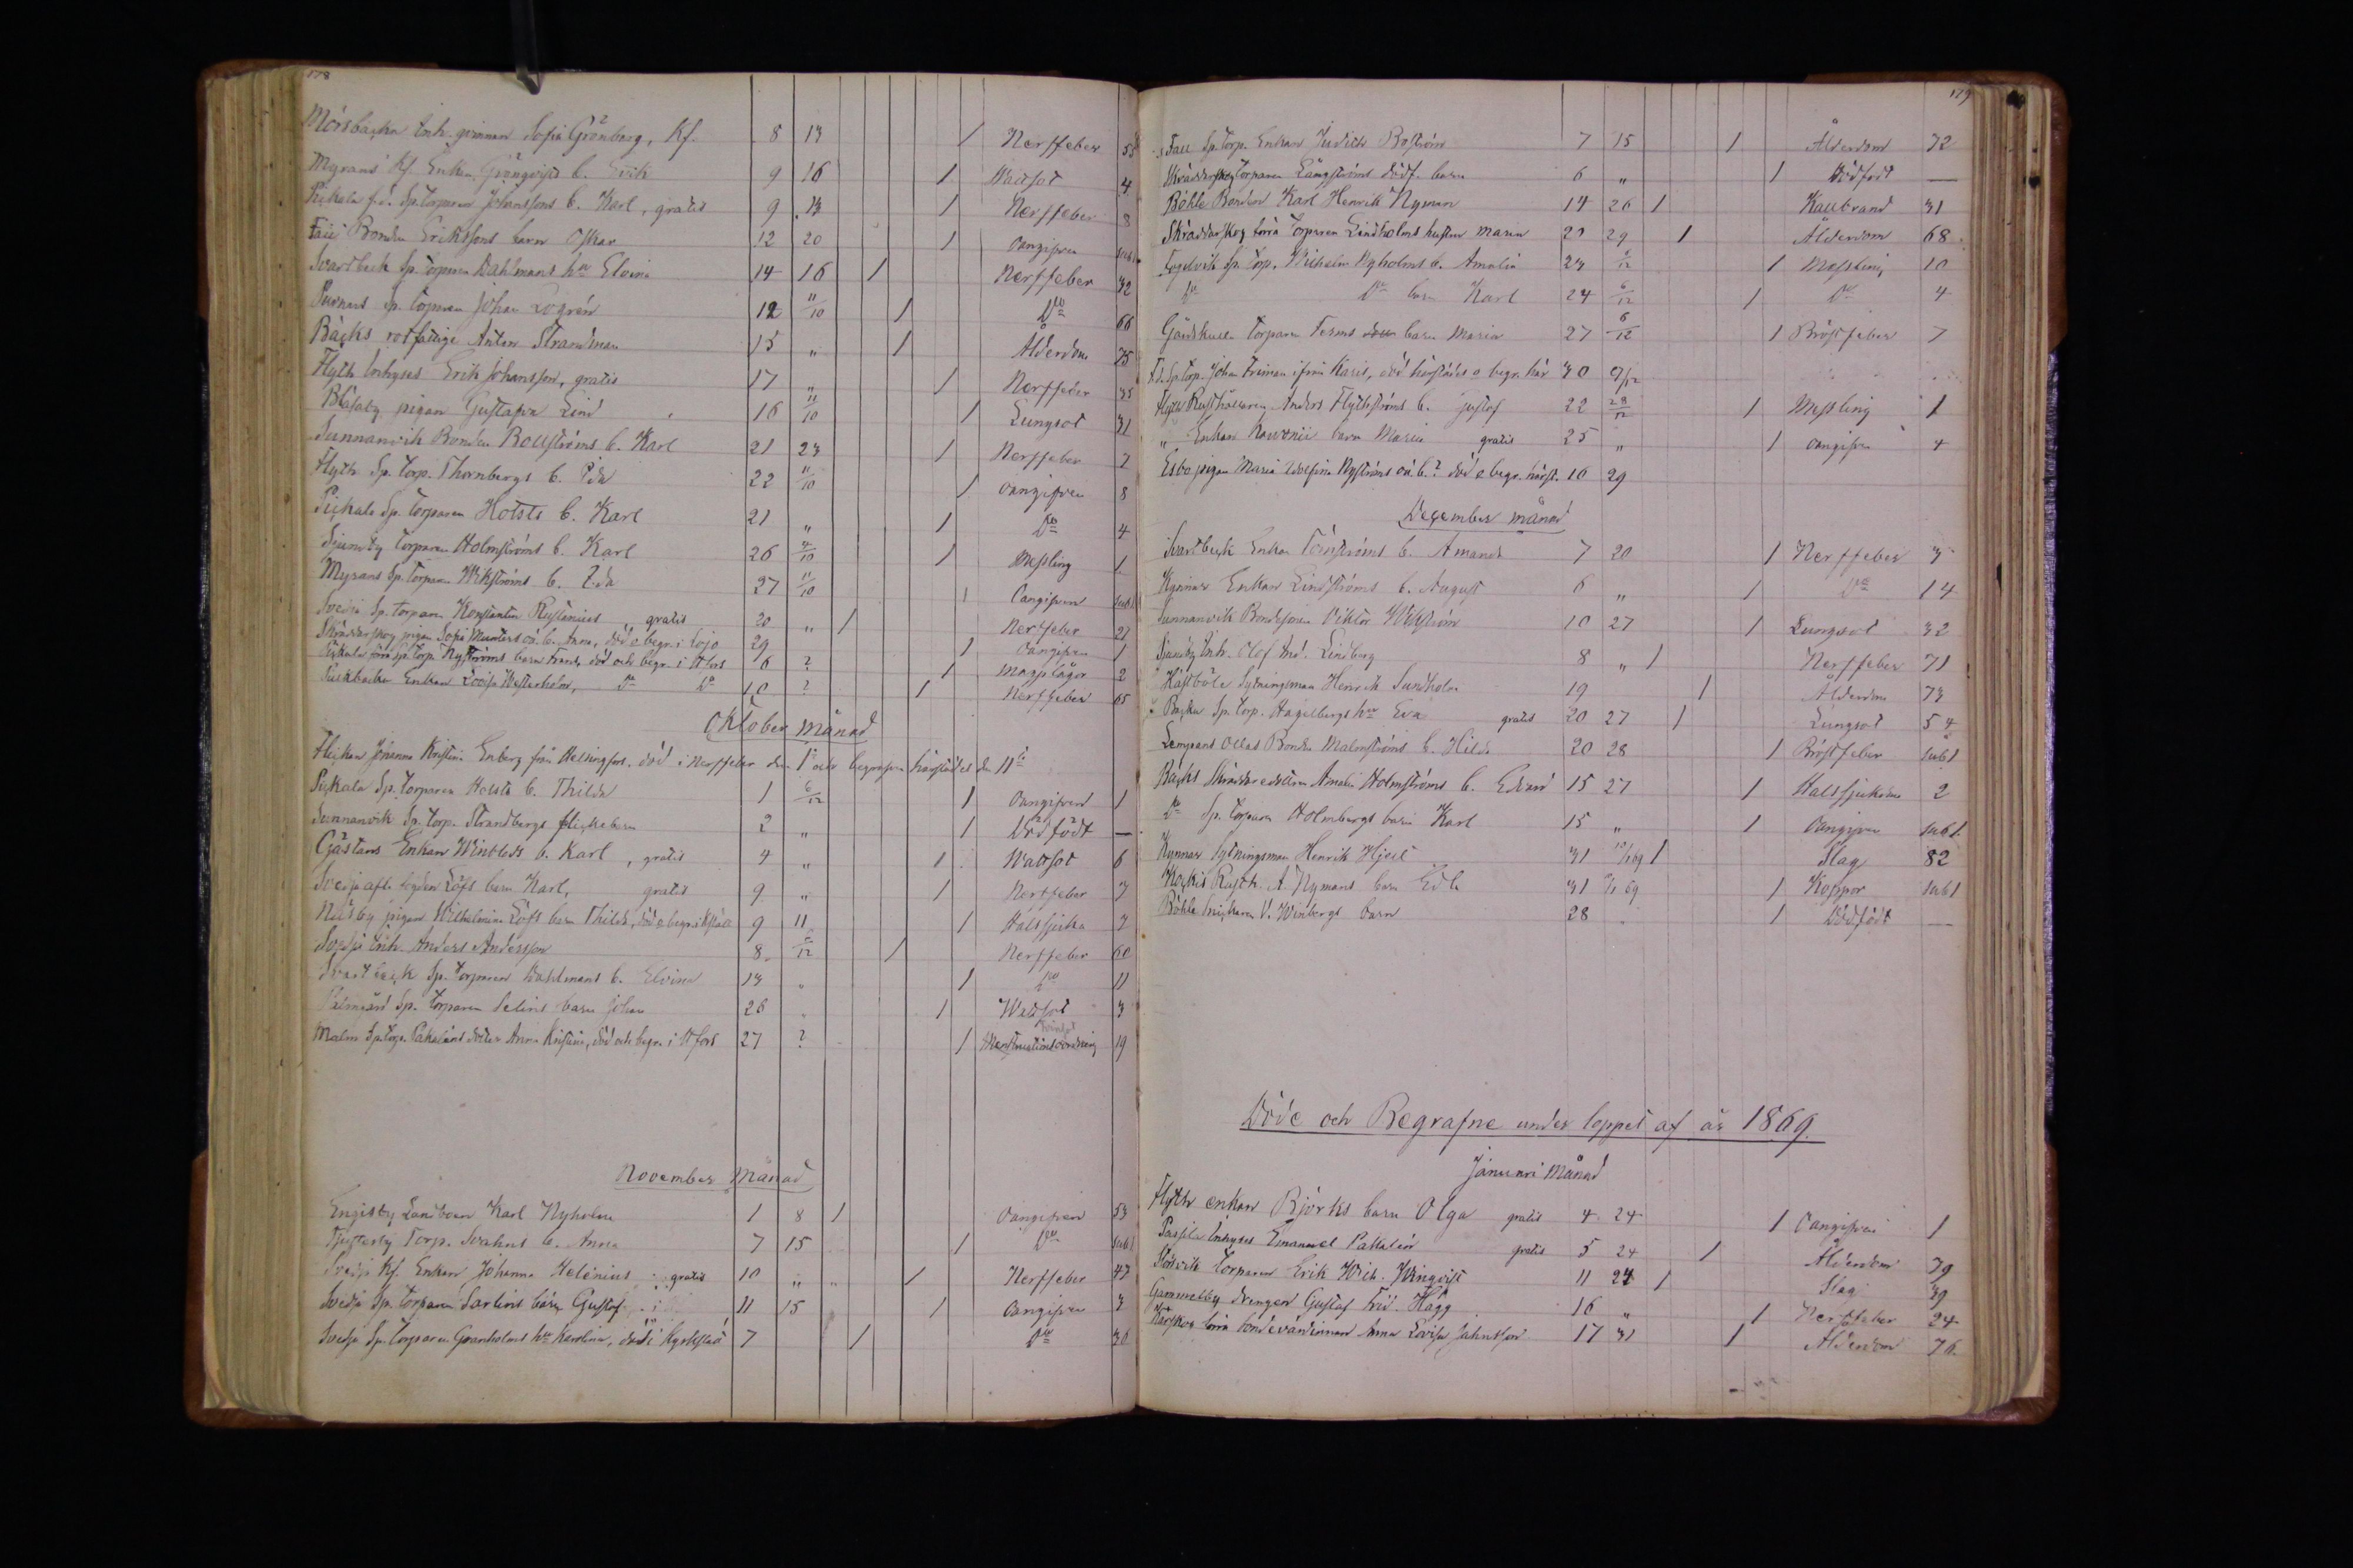 178
Mörsbacka Inh. qvinnan Sofia Grönberg, Kf. 8 13 1 Nerffeber 58
Myrans Kf. Enkan Grönqvists b. Erik 9 16 1 Wattsot 4
Pickala f.d. Sp. Torparen Johanssons b. Karl, gratis 9 13 1 Nerffeber 8
Fall Bonden Erikssons barn Oskar 12 20 1 Oangifven
Svartbeck Sp. Torparen Dahlmans hu Elvina 14 16 1 Nerffeber 32
Purnus Sp. Torparen Johan Logrén 12 11/10 1 Do 66
Bäcks rotfattige Anton Strandman 15 „ 1 Ålderdom 75
Flyth Inhyses Erik Johansson, gratis 17 „ 1 Nerffeber 35
Blåsaby pigan Gustafva Lind 16 11/10 1 Lungsot 31
Sunnanvik Bonden Bollströms b. Karl 21 23 1 Nerffeber 7
Flyth Sp. Torp. Thornbergs b. Ida 22 11/10 1 oangifven 8
Pickala Sp. Torparen Holsts b. Karl 21 „ 1 Do 4
Sjundby Torparen Holmströms b. Karl 26 4/10 1 Messling 1
Myrans Sp. Torparen Wikströms b. Ida 27 11/10 1 Oangifven
Svedja Sp. Torparen Konstantin gratis 20 „ 1 Nerffeber 21
Skräddarskog pigan Sofia Munters oä. b. Anna, död o begr. i Lojo 29 1 Oangifven 1
Pickala förra Sp. Torp. Nyströms barn Frans, död och begr. i Hfors 6 ? 1 Magplågor 2
Enkan Lovisa Westerholm, Do Do 10 ? 1 Nerffeber 65
Oktober månad
Flickan Johanna Kristina Enberg från Helsingfors. död i nerffeber den 1e och begrafven härstädes den 11te
Pickala Sp. Torparen Holsts b. Thilda 1 6/12 1 Oangifven 1
Sunnanvik Sp. Torp. Strandbergs flickebarn 2 „ 1 Dödfödt —
Gästans Enkan Winbloms b. Karl, gratis 4 „ 1 Wattsot 6
Svedja afl. fogden Löfs barn Karl, gratis 9 „ 1 Nerffeber 7
pigan Wilhelmina Löfs barn Thilda, död o begr. i 9 11 1 Halssjuka 7
Svedja Inh. Anders Andersson 8 6/12 1 Nerffeber 60
Svartbeck Sp. Torparen Dahlmans b. Elvina 13 „ 1 Do 11
Sp. Torparen Selins barn Johan 26 „ 1 Wattsot 3
Malm Sp. Torp. dotter Anna Kristina, död och begr. i Hfors 27 ? 1 Menstruationsoordning 19
November månad
Engisby Landboen Karl Nyholm 1 8 1 Oangifven 53
Tjusterby Torp. Svahns b. Anna 7 15 1 Do
Svedja Kf. Enkan Johanna Helenius gratis 10 „ „ 1 Nerffeber 47
Svedja Sp. Torparen Sarlins barn Gustaf 11 15 1 Oangifven 3
Svedja Sp. Torparen Granholms hu Karolina, död i Kyrkslätt 7 1 Do 36
179
Fall Sp. Torp. Enkan Judith Boström 7 15 1 Ålderdom 72
Skräddarskog Torparen Långströms dödf. barn 6 „ 1 Dödfödt —
Böhle Bonden Karl Henrik Nyman 14 26 1 Kallbrand 31
Skräddarskog förra Torparen Lindholms hustru Maria 20 29 1 Ålderdom 68
Fogelvik Sp. Torp. Wilhelm Nyholms b. Amalia 23 6/12 1 Messling 10
Do Do barn Karl 24 6/12 1 Do 4
Gårdskulla Torparen Ferms barn Maria 27 6/12 1 Bröstfeber 7
F.d. Sp. Torp. Johan Friman ifrån Karis, död härstädes o begr. här 30 9/12
Flyth Rusthållaren Anders Flythströms b. Gustaf 22 28/12 1 Messling 1
„ Enkan barn Maria gratis 25 „ 1 oangifven 4
Esbo pigan Maria Nyströms oä. b.? död o begr. härst. 16 29
December månad
Svartbeck Enkan Törnströms b. Amanda 7 20 1 Nerffeber 3
Kynnar Enkan Lindströms b. August 6 „ 1 Do 14
Sunnanvik Bondesonen Viktor Wikström 10 27 1 Lungsot 32
Sjundby Inh. Olof And. Lindberg 8 „ 1 Nerffeber 71
Hästböle Sytningsman Henrik Sundholm 19 1 Ålderdom 73
Backa Sp. Torp. Hagelbergs hu Eva gratis 20 27 1 Lungsot 54
Lempans Ollas Bonden Malmströms b. Hilda 20 28 1 Bröstfeber
Backs Amalia Holmströms b. Edvard 15 27 1 Halssjukdom 2
Do Sp. Torparen Holmbergs barn Karl 15 „ 1 Oangifven
Kynnar Sytningsman Henrik Hjelt 31 10/1 69 1 Slag 82
Kockis Rusth. A. Nymans barn Edla 31 69 1 Koppor
Böhle Snickaren V. Winbergs barn 28 1 Dödfödt —
Döde och Begrafne under loppet af år 1869.
Januari Månad
Flyth enkan Björks barn Olga gratis 4 24 1 Oangifven 1
Inhyses Emanuel gratis 5 24 1 Ålderdom 79
Störsvik Torparen Erik Wilh. Winqvist 11 24 1 Slag 39
Gammelby drengen Gustaf Frid. Hägg 16 „ 1 Nerffeber 24
förra Anna Lovisa Jahnsson 17 31 1 Ålderdom 76